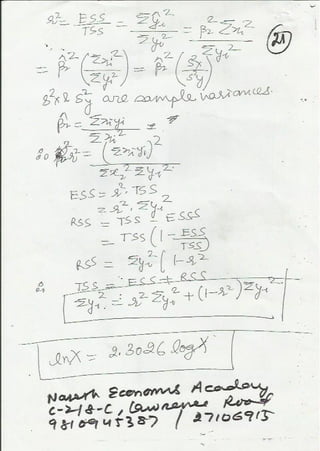 r² = ESS/TSS = Σŷi²/Σyi² = β̂2² Σxi²/Σyi²
21
= β̂2² (Σxi²/Σyi²) = β̂2² (S²x/S²y)
S²x & S²y are sample variances.
β̂2 = Σxiyi/Σxi²
∴ r² = (Σxiyi)²/Σxi² Σyi²
ESS = r². TSS
= r². Σyi²
RSS = TSS - ESS
= TSS (1 - ESS/TSS)
RSS = Σyi² (1 - r²
∴ TSS = ESS + RSS
Σyi² = r² Σyi² + (1-r²) Σyi²
lnX = 2.3026 log X
Naresh Economics Academy
C-218-C, Lawrence Road
9810945387 / 27106915